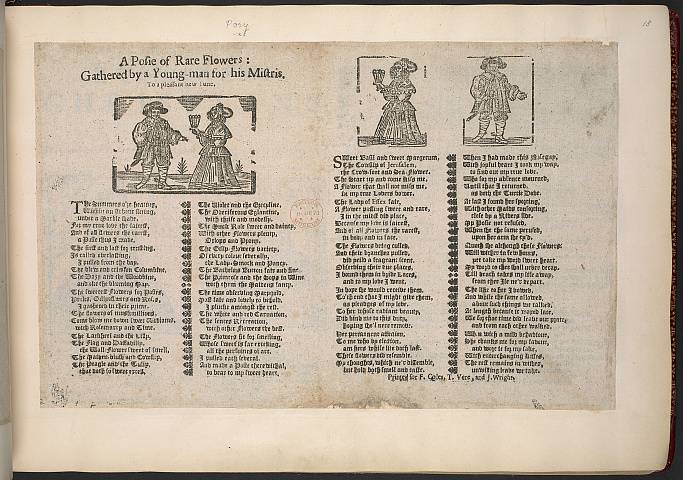 Posy
18
A Posie of Rare Flowers:
Gathered by a Young-man for his Mistris.
To a pleasant new Tune.
The Summers
within an Arbour sitting,
under a Marble shade,
For my true love the fairest,
And of all flowers the rarest,
a Posie thus I made.
The first and last for trusting,
Is called everlasting,
I pulled from the bay.
The blew and crimson Columbine,
The Dazy and the Woodbine,
and eke the blooming May.
The sweetest flowers for Posies,
Pinkes, Gilliflowers and Roses,
I gathered in their prime.
The flowers of
Come blow me down sweet Williams,
with Rosemary and Time.
The Larkheel and the Lilly,
The Flag and Daffadilly,
the Wall-flower sweet of smell,
The Maiden-blush and Cowslip,
The Peagle and the Tulip,
that doth so sweet excell.
The Violet and the
The Odoriferous Eglantine,
with thrift and modesty.
The Musk Rose sweet and dainty,
With other Flowers plenty,
Oxlops and Piony.
The Gilly-flowers variety,
Of every colour severally,
the Lady-smock and Pancy.
The Bachelors Button fate and fine
The Primrose and the Hops in Wine
with them the
The time observing Marygold,
Most fate and lovely to behold,
I pluckt amongst the rest,
The white and red Carnation,
The senses Recreation,
with other Flowers the best.
The Flowers fit for smelling,
Whose sweetness far excelling,
all the perfumes of art,
I pulled each severall,
And made a Posie therewithal,
to bear to my sweet heart.
Sweet Basil and sweet Margerum,
The Cowslip of Jerusalem,
the Crow-foot and Sea-flower.
The Start up and come kiss me,
A Flower that shall not miss me,
in my true Lovers bower.
The Lady of Essex fair,
A flower passing sweet and rare,
I in the midst did place,
Because my love is fairest,
And of all flowers the rarest,
in body and in face.
The Flowers being culled,
And their branches pulled,
did yeild a fragrant scent.
Observing their due places,
I bound them in bride Laces,
and to my love I went.
In hope she would receive them,
To th'end that I might give them,
as pleadges of my love.
To her whose radiant beauty,
Did bind me to this duty,
hoping she'l nere remove.
Her permanent affection,
To me who by election,
am hers while life doth last.
These flowers do resemble
My thoughts, which ne'r dissemble,
but holy both smell and taste.
When I had made this Nosegay,
With joyful heart I took my way,
to find out my true love.
Who for my absence mourned,
Until that I returned,
as doth the Turtle Dove.
At last I found her sporting,
With other Maids consorting,
close by a Rivers side.
My Posie not refused,
When she the same perused,
upon her arm she ty'd.
Quoth she although these Flowers
Will wither in few hours,
yet take my word sweet heart,
My love to thee shall wither never
Till death takes my life away,
from thee Ile ne'r depart.
The like to her I vowed,
And while the same allowed,
about such things we talked,
At length because it waxed late,
We for that time did leave our prate,
and from each other walked.
Who with a mild behaviour,
She thanks me for my favour,
and wore it for my sake,
With enterchanging kisses,
The rest remains in wishes,
unwilling leave we take.
Printed for F. Coles, T. Vere, and J. Wright.